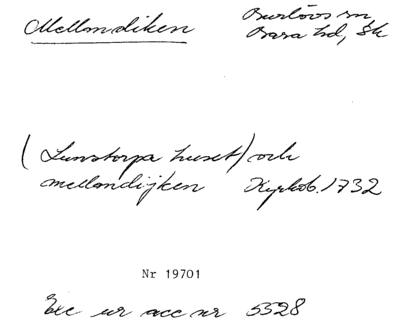 Mellandiken Burlövs sn,
Bara hd, Sk
(Lunstorpa huset) och
mellandijken Kyrkob. 1732
Nr 19701
Exc ur acc nr 5528